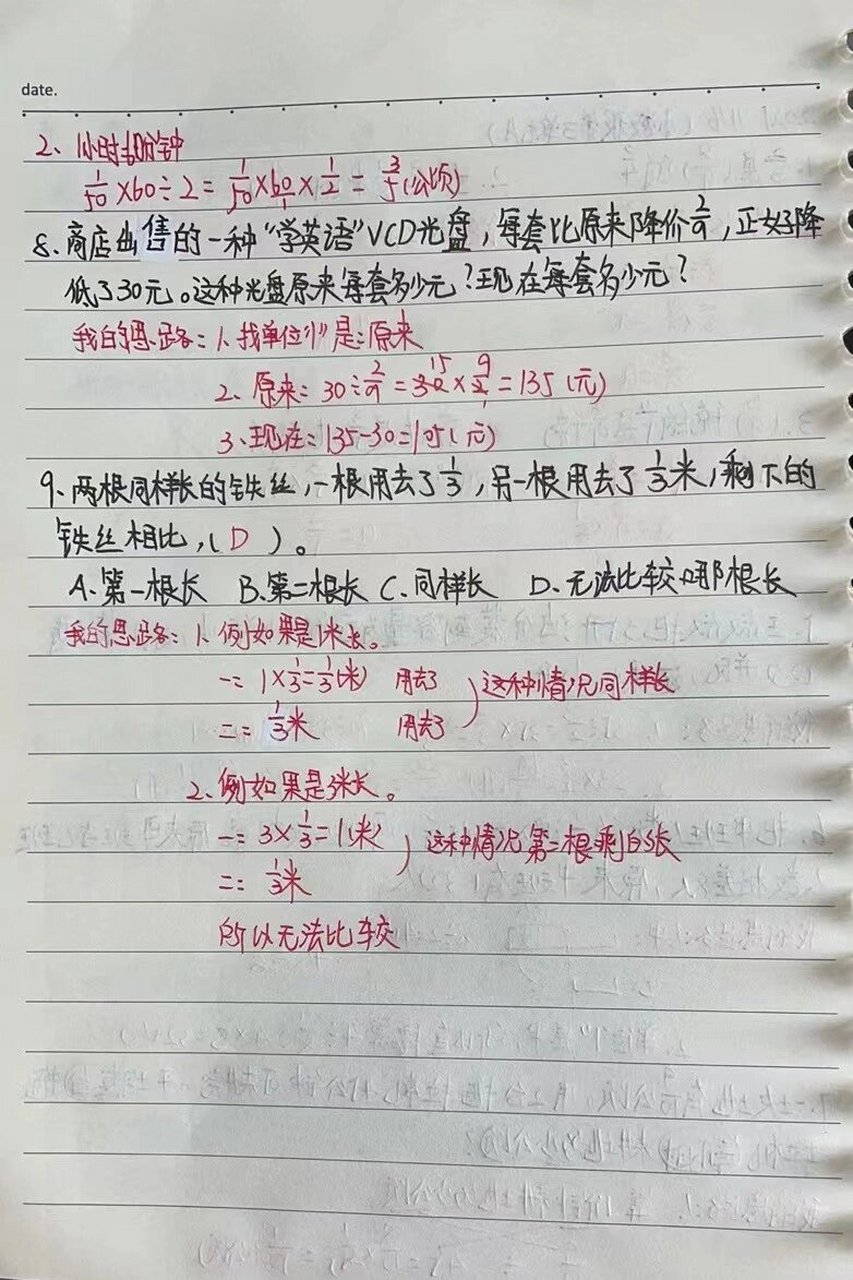 date.
2、1小时=60分钟
1/50 ×60÷2= 1/50 × 60/1 × 1/2 = 3/5(公顷)
8、商店出售的一种“学英语”VCD光盘，每套比原来降价2/9，正好降
低了30元。这种光盘原来每套多少元？现在每套多少元？
我的思路：1、找单位“1”是：原来
2、原来：30÷2/9=30×9/2=135(元)
3、现在：135-30=105(元)
9、两根同样长的铁丝，一根用去了1/3，另一根用去了1/3米，剩下的
铁丝相比，( D )。
A、第一根长 B、第二根长 C、同样长 D、无法比较哪根长
我的思路：1、例如果是1米长。
一：1×1/3=1/3(米) 用去了
二：1/3米 用去了 )这种情况同样长
2、例如果是3米长。
一：3×1/3=1(米)
二：1/3米 )这种情况第二根剩的长
所以无法比较